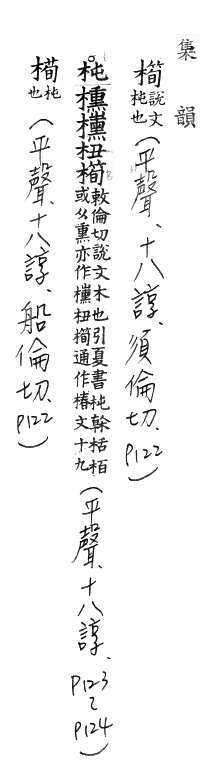 集韻
橁說文杶也(平聲、十八諄、須倫切、P122)
杶櫄杻橁敕倫切說文木也引夏書杶榦栝栢或从熏亦作杻橁通作椿文十九(平聲、十八諄、P123~P124)
橁杶也(平聲、十八諄、船倫切、P122)